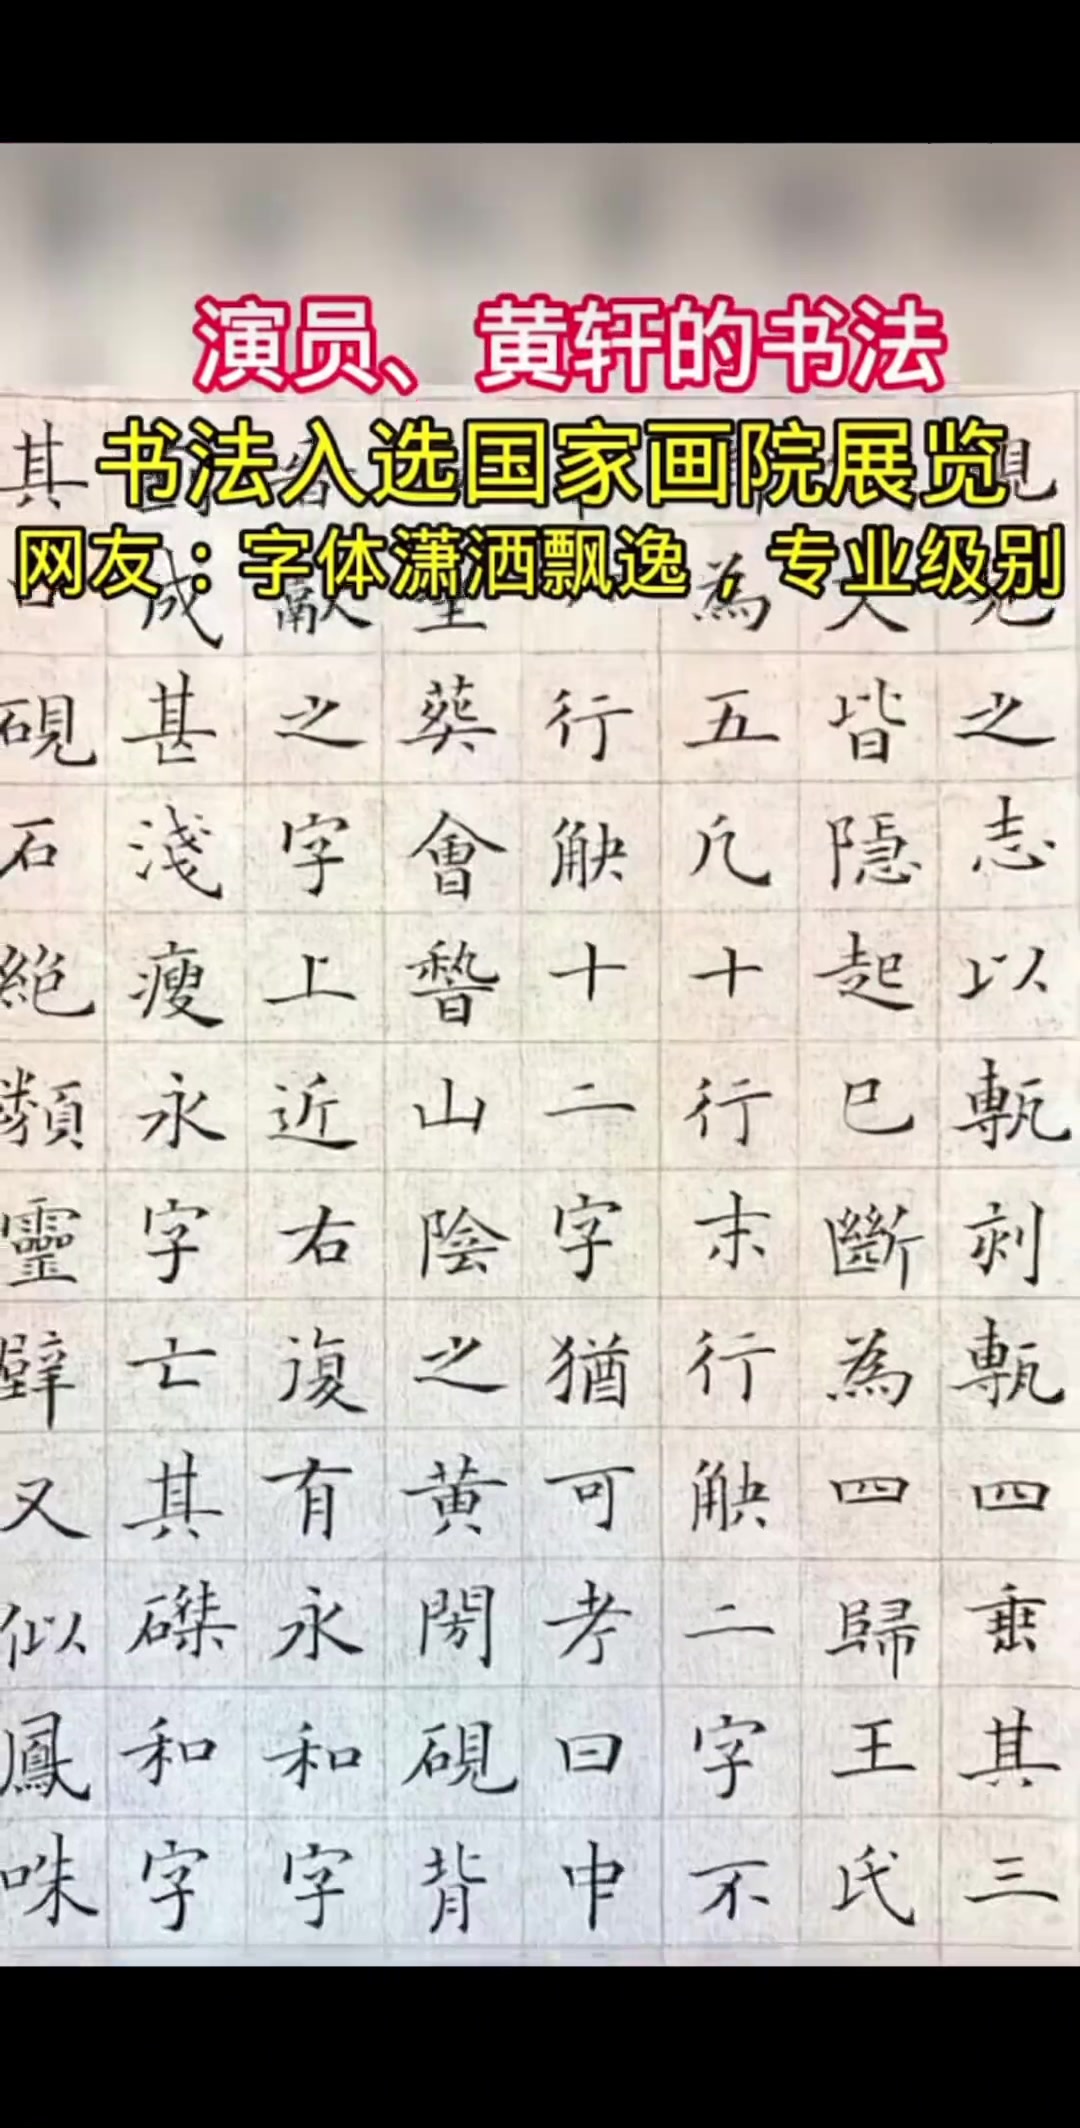 演员、黄轩的书法
书法入选国家画院展览
网友：字体潇洒飘逸，专业级别
之志以甎刻甎四垂其三
皆隱起已斷為四歸王氏
為五凡十行末行觖二字不
行觖十二字猶可考曰中
葬會稽山陰之黄閍硯背
獻之字上近右復有永和字
成甚淺瘦永字亡其磔和字
其硯石絶類靈壁又似鳳咮